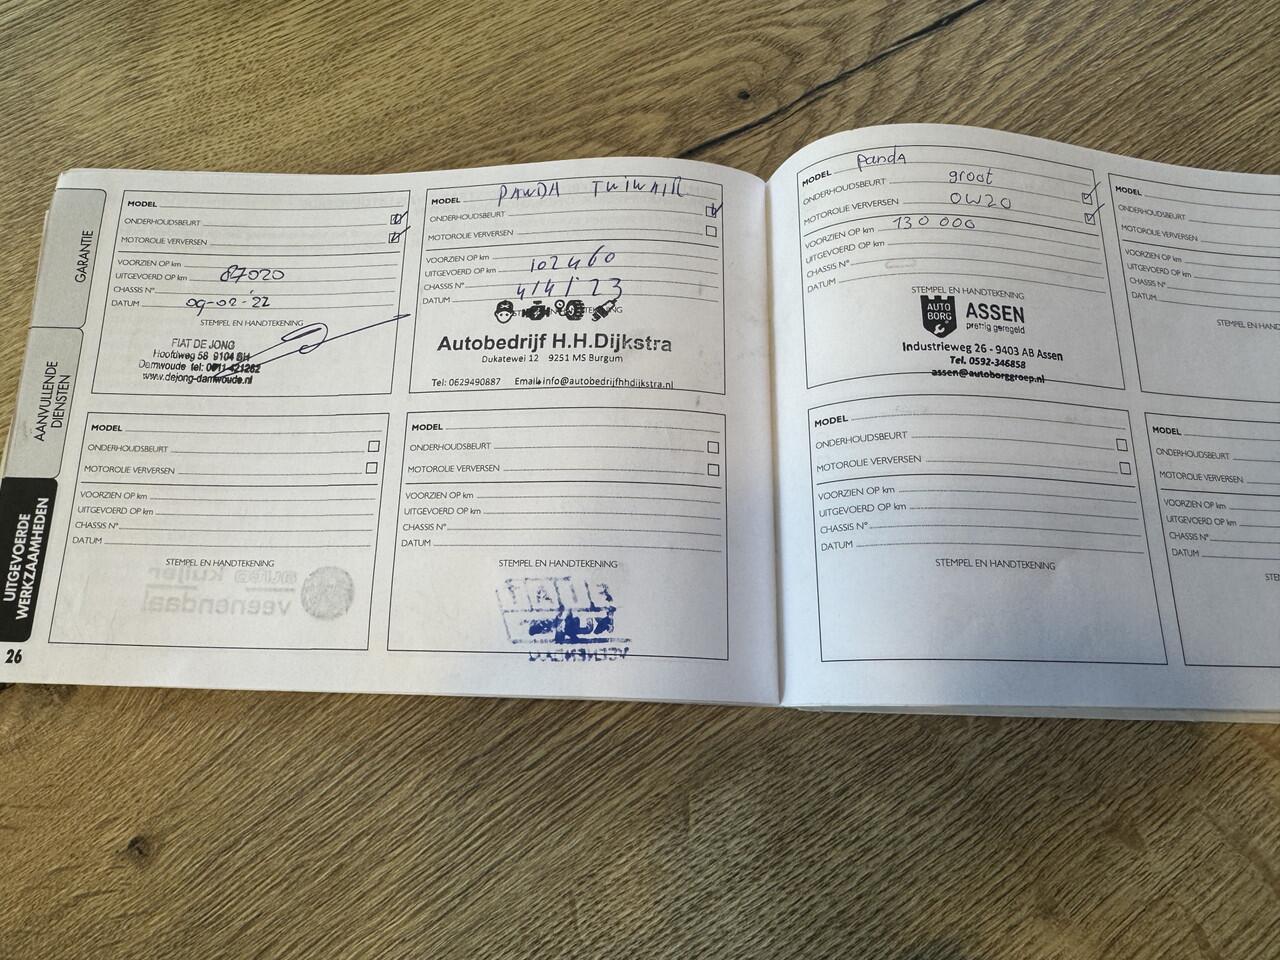 GARANTIE
AANVULLENDE
DIENSTEN
UITGEVOERDE
WERKZAAMHEDEN
26
MODEL
ONDERHOUDSBEURT
MOTOROLIE VERVERSEN
VOORZIEN OP km
UITGEVOERD OP km 87020
CHASSIS N°
DATUM 09-02-'22
STEMPEL EN HANDTEKENING
FIAT DE JONG
Hoofdweg 58 9104 BH
Damwoude tel: 0511 421262
www.dejong-damwoude.nl
MODEL PANDA TWINAIR
ONDERHOUDSBEURT
MOTOROLIE VERVERSEN
VOORZIEN OP km
UITGEVOERD OP km 102460
CHASSIS N°
DATUM 4/4/'23
STEMPEL EN HANDTEKENING
Autobedrijf H.H.Dijkstra
Dukatewei 12 9251 MS Burgum
Tel: 0629490887 Email: info@autobedrijfhhdijkstra.nl
MODEL
ONDERHOUDSBEURT
MOTOROLIE VERVERSEN
VOORZIEN OP km
UITGEVOERD OP km
CHASSIS N°
DATUM
STEMPEL EN HANDTEKENING
auto kuijer
veenendaal
MODEL
ONDERHOUDSBEURT
MOTOROLIE VERVERSEN
VOORZIEN OP km
UITGEVOERD OP km
CHASSIS N°
DATUM
STEMPEL EN HANDTEKENING
FIAT
MODEL Panda
ONDERHOUDSBEURT groot
MOTOROLIE VERVERSEN 0W20
VOORZIEN OP km 130 000
UITGEVOERD OP km
CHASSIS N°
DATUM
STEMPEL EN HANDTEKENING
AUTO
BORG
ASSEN
prettig geregeld
Industrieweg 26 - 9403 AB Assen
Tel. 0592-346858
assen@autoborggroep.nl
MODEL
ONDERHOUDSBEURT
MOTOROLIE VERVERSEN
VOORZIEN OP km
UITGEVOERD OP km
CHASSIS N°
DATUM
STEMPEL EN HAND
MODEL
ONDERHOUDSBEURT
MOTOROLIE VERVERSEN
VOORZIEN OP km
UITGEVOERD OP km
CHASSIS N°
DATUM
STEMPEL EN HANDTEKENING
MODEL
ONDERHOUDSBEURT
MOTOROLIE VERVERSEN
VOORZIEN OP km
UITGEVOERD OP km
CHASSIS N°
DATUM